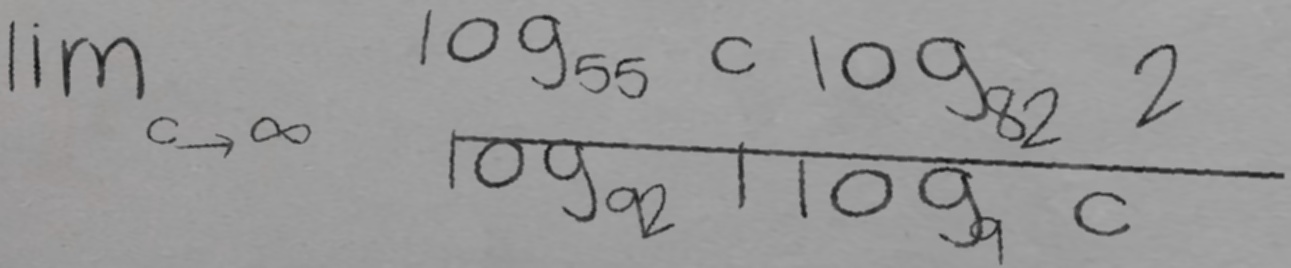 lim c→∞ log₅₅ c log₈₂ 2
log₉₂ 1 log₉ c